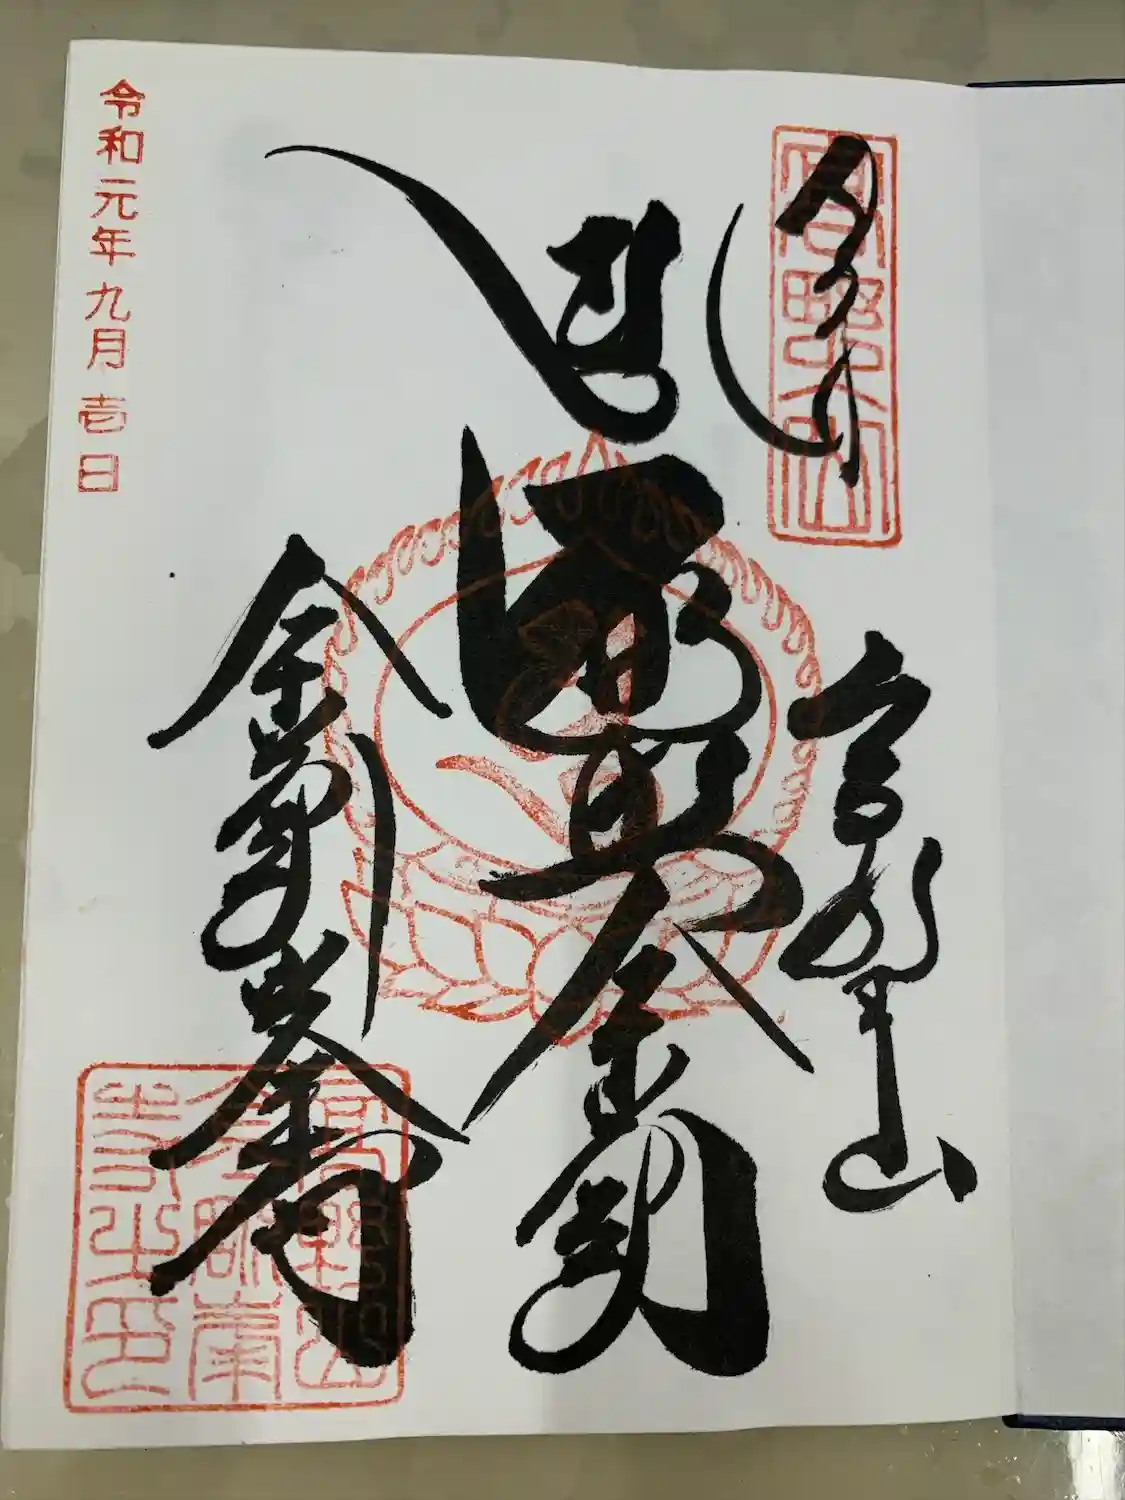 奉拝
高野山
高野山
遍照金剛
金剛峯寺
高野山
金剛峯
寺之印
令和元年九月壱日